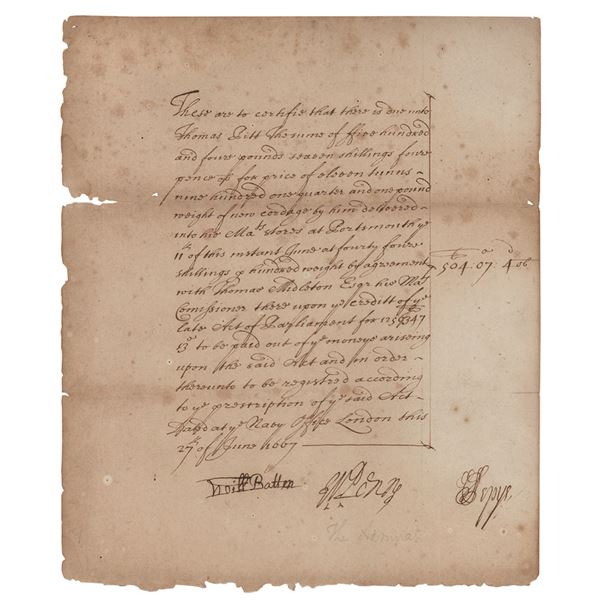 These are to certifie that there is due unto
Thomas Pitt the sume of ffive hundred
and foure pounds seaven shillings foure
pence ob for price of eleven tunns
nine hundred one quarter and one pound
weight of new cordage by him delivered
into his Mats stores at Portsmouth ye
11th of this instant June at fourty foure
shillings p hundred weight by agreement
with Thomas Midleton Esqr his Mats
Comissioner there upon ye creditt of ye
late Act of Parliament for 1256347li
13s to be paid out of ye moneys arising
upon the said Act and in order
thereunto to be registred according
to ye prescription of ye said Act
Dated at ye Navy Office London this
27th of June 1667
li s d
504:07:4 ob
Will Batten
W Penn
S Pepys
The